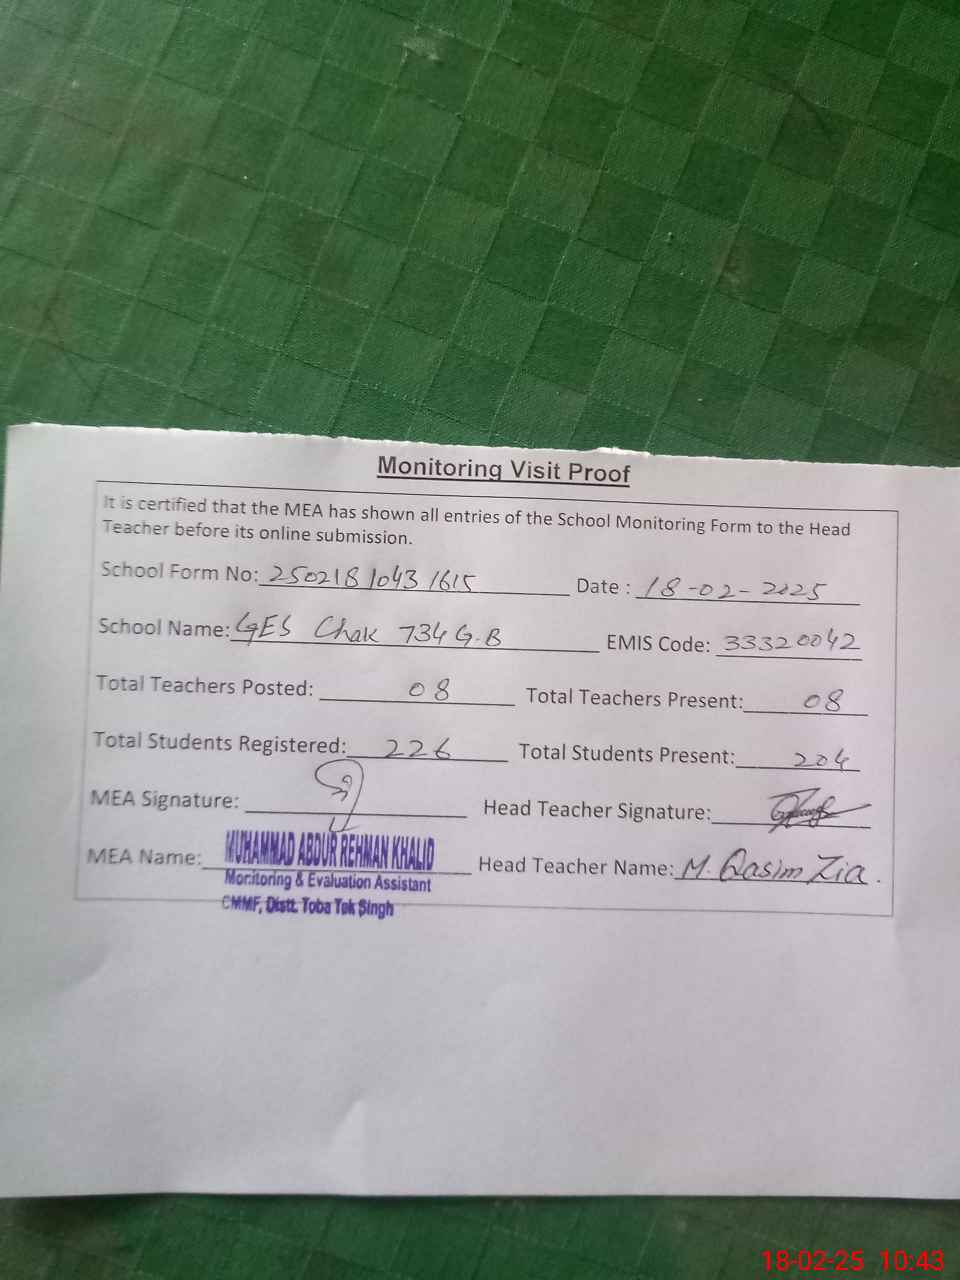 Monitoring Visit Proof
It is certified that the MEA has shown all entries of the School Monitoring Form to the Head
Teacher before its online submission.
School Form No: 2502181043 1615 Date : 18-02-2025
School Name: GES Chak 734 G.B EMIS Code: 33320042
Total Teachers Posted: 08 Total Teachers Present: 08
Total Students Registered: 226 Total Students Present: 204
MEA Signature: Head Teacher Signature:
MEA Name: MUHAMMAD ABDUR REHMAN KHALID Head Teacher Name: M. Qasim Zia.
Monitoring & Evaluation Assistant
CMMF, Distt. Toba Tek Singh
18-02-25 10:43